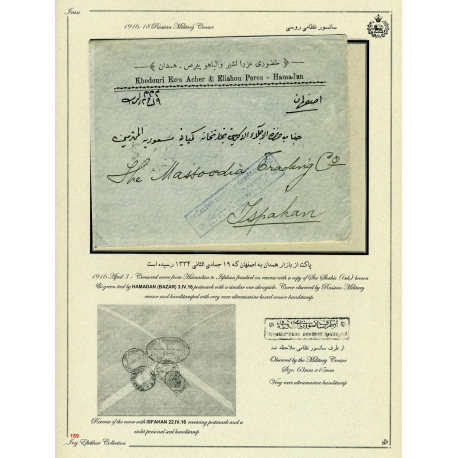 Iran
1916-18 Russian Military Censor
سانسور نظامی روسی
حضوری عزرا اشیر والیاهو پیرص - همدان
Khedouri Ezra Acher & Eliahou Peres - Hamadan
اصفهان
The Massoodia Trading Co
Ispahan
پاکت از بازار همدان به اصفهان که ۱۹ جمادی الثانی ۱۳۳۴ رسیده است
1916 April 3 - Censored cover from Hamadan to Isfahan franked on reverse with a copy of Six Shahis (6ch) brown
& green tied by HAMADAN (BAZAR) 3.IV.16 postmark with a similar one alongside. Cover observed by Russian Military
censor and handstamped with very rare ultramarine boxed censor handstamp.
از طرف سانسور نظامی ملاحظه شد
Observed by the Military Censor
Size: 63mm x 15mm
Very rare ultramarine handstamp
Reverse of the cover with ISFAHAN 22.IV.16 receiving postmark and a
violet personal seal handstamp
159
Iraj Eftekhar Collection